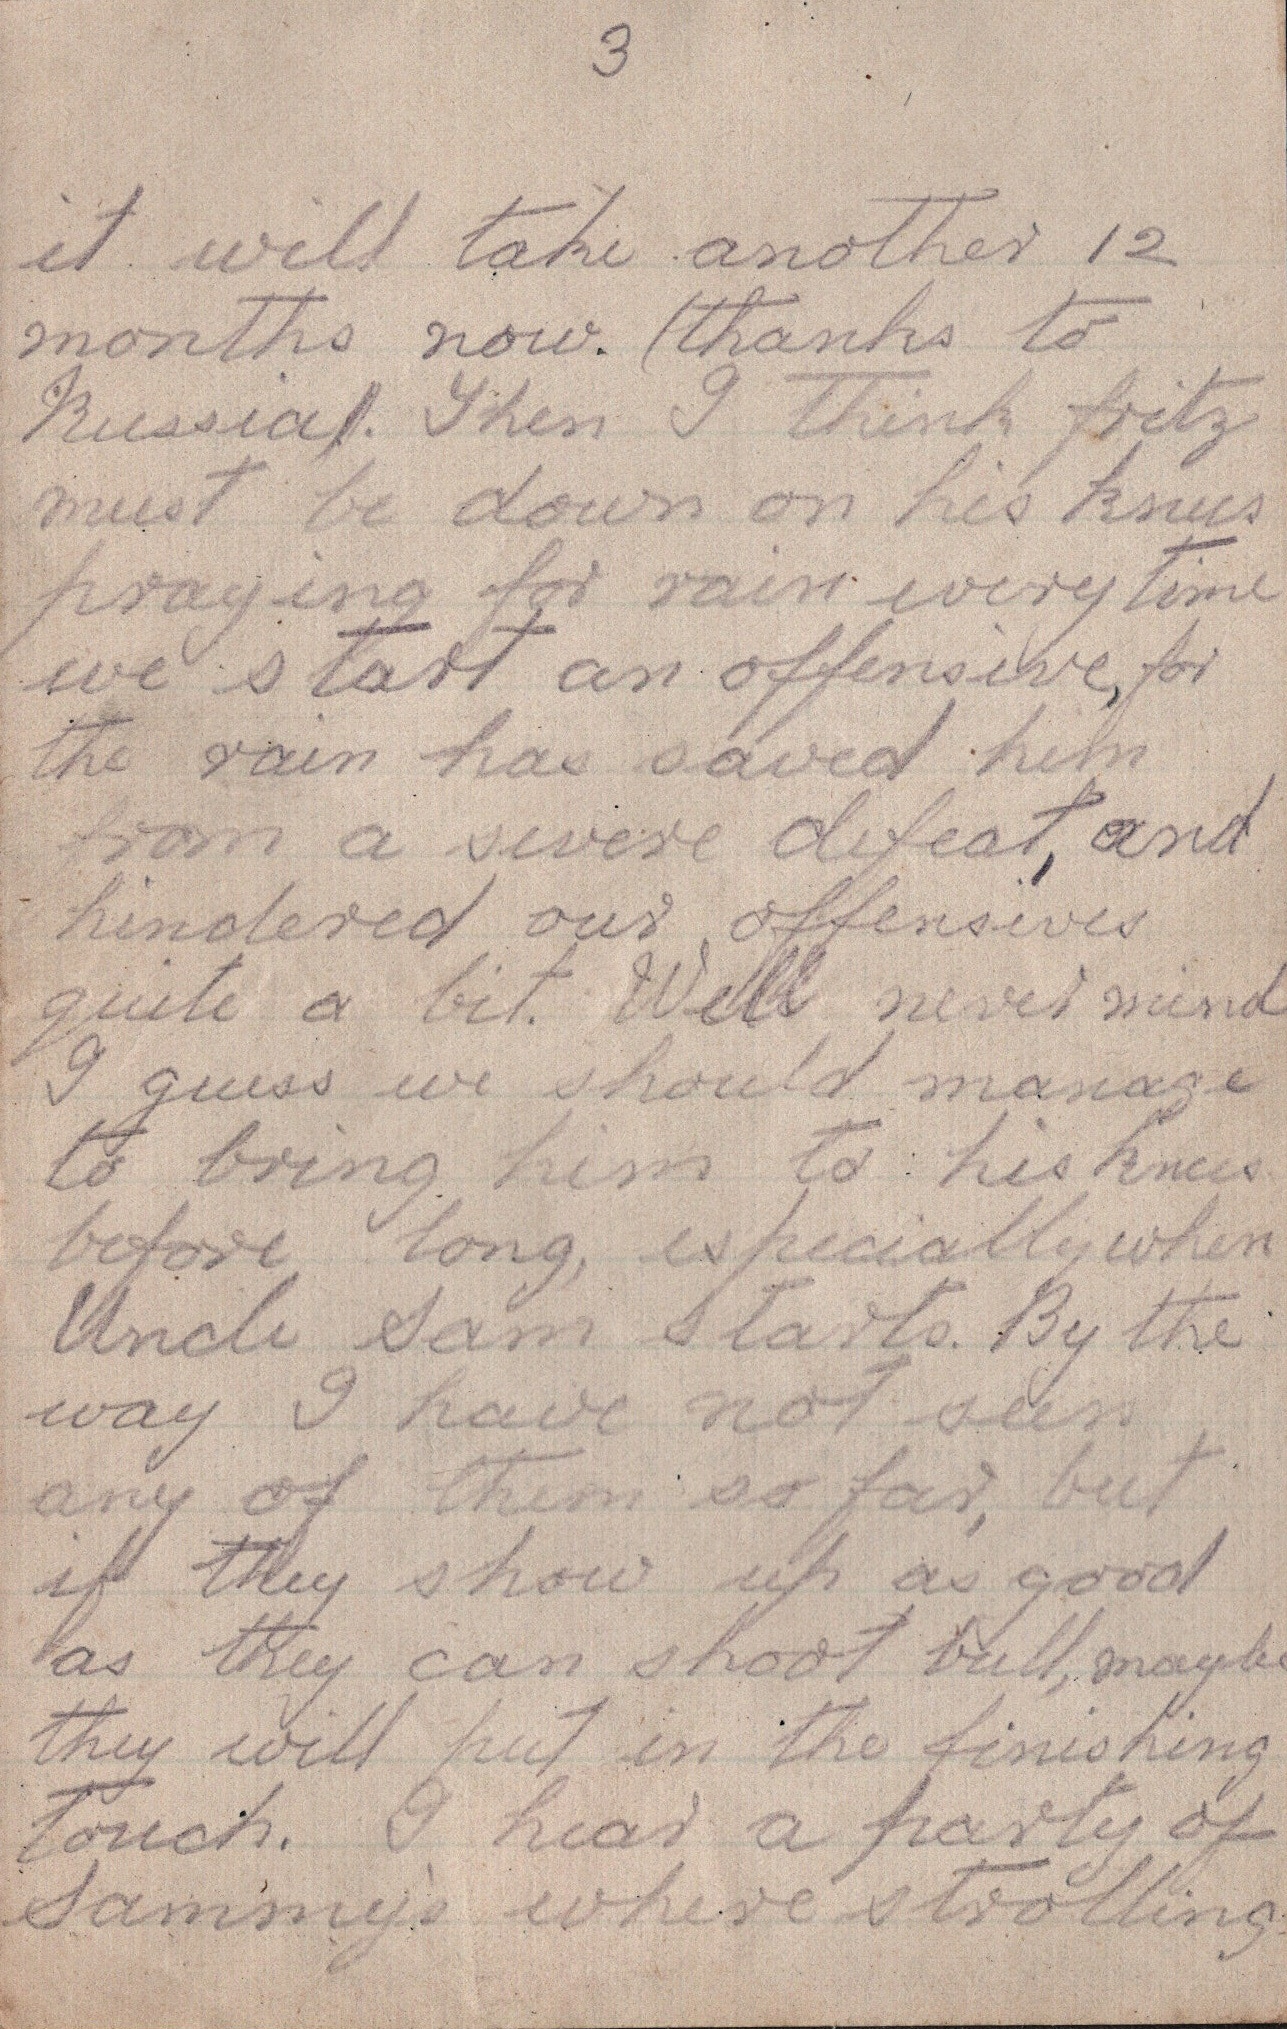 3
it will take another 12
months now. (thanks to
Russia). Then I think fritz
must be down on his knees
praying for rain every time
we start an offensive, for
the rain has saved him
from a severe defeat, and
hindered our offensives
quite a bit. Well never mind
I guess we should manage
to bring him to his knees
before long, especially when
Uncle Sam starts. By the
way I have not seen
any of them so far, but
if they show up as good
as they can shoot bull, maybe
they will put in the finishing
touch. I hear a party of
Sammy's where strolling